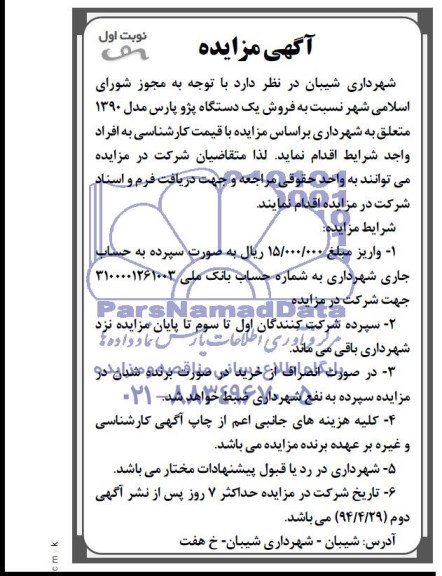 نوبت اول
آگهی مزایده
شهرداری شیبان در نظر دارد با توجه به مجوز شورای
اسلامی شهر نسبت به فروش یک دستگاه پژو پارس مدل ۱۳۹۰
متعلق به شهرداری براساس مزایده با قیمت کارشناسی به افراد
واجد شرایط اقدام نماید. لذا متقاضیان شرکت در مزایده
می توانند به واحد حقوقی مراجعه و جهت دریافت فرم و اسناد
شرکت در مزایده اقدام نمایند.
شرایط مزایده:
۱- واریز مبلغ ۱۵/۰۰۰/۰۰۰ ریال به صورت سپرده به حساب
جاری شهرداری به شماره حساب بانک ملی ۳۱۰۰۰۰۱۲۶۱۰۰۳
جهت شرکت در مزایده
ParsNamadData
۲- سپرده شرکت کنندگان اول تا سوم تا پایان مزایده نزد
شهرداری باقی می ماند.
۳- در صورت انصراف از خرید در صورت برنده شدن در
مزایده سپرده به نفع شهرداری ضبط خواهد شد.
۰۲۱-۸۸۳۴۹۶۷۰-۵
۴- کلیه هزینه های جانبی اعم از چاپ آگهی کارشناسی
و غیره بر عهده برنده مزایده می باشد.
۵- شهرداری در رد یا قبول پیشنهادات مختار می باشد.
۶- تاریخ شرکت در مزایده حداکثر ۷ روز پس از نشر آگهی
دوم (۹۴/۴/۲۹) می باشد.
آدرس: شیبان - شهرداری شیبان- خ هفت